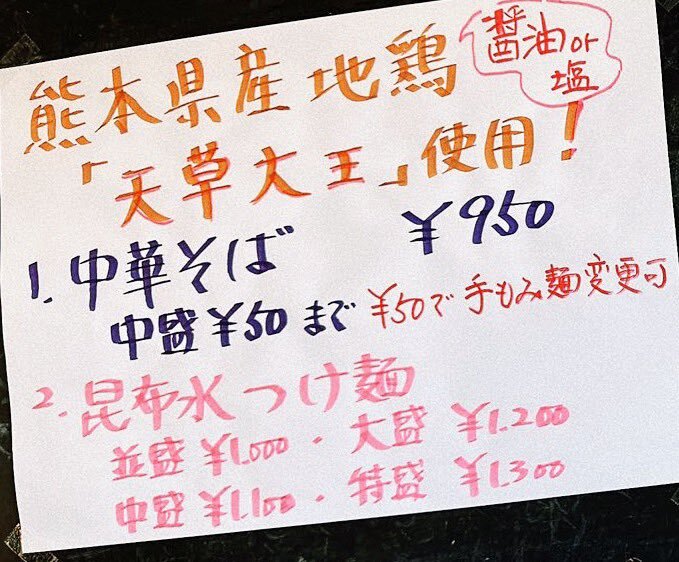 熊本県産地鶏
醤油or
塩
「天草大王」使用!
1.中華そば ¥950
中盛¥50まで ¥50で手もみ麺変更可
2.昆布水つけ麺
並盛¥1.000・大盛 ¥1.200
中盛¥1.100・特盛 ¥1.300